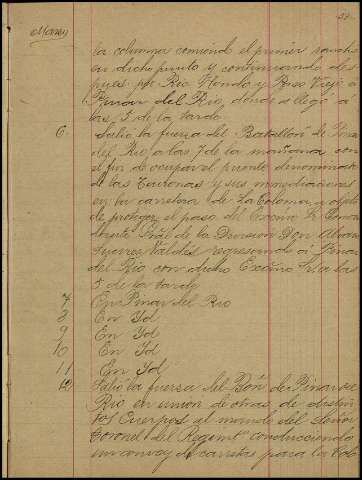 Marzo
la columna comiendo el primer rancho
en dicho punto y continuando des
pues por Rio Hondo y Paso Viejo a
Pinar del Rio, donde se llegó a
las 5 de la tarde
6 Salió la fuerza del Batallon de Pinar
del Rio a las 7 de la mañana con
el fin de ocupar el puente denominado
de las Taironas y sus inmediaciones
en la carretera de La Coloma a objeto
de proteger el paso del Excmo Sr
de la Division Don Alvaro
Suarez Valdés, regresando á Pinar
del Rio con dicho Excmo Sr a las
5 de la tarde
7 En Pinar del Rio
8 En Id
9 En Id
10 En Id
11 En Id
12 Salió la fuerza del Bón de Pinar del
Rio en union de otras de distin
tos Cuerpos al mando del Señor
Coronel del Regimto conduciendo
un convoy de carretas para la Colo